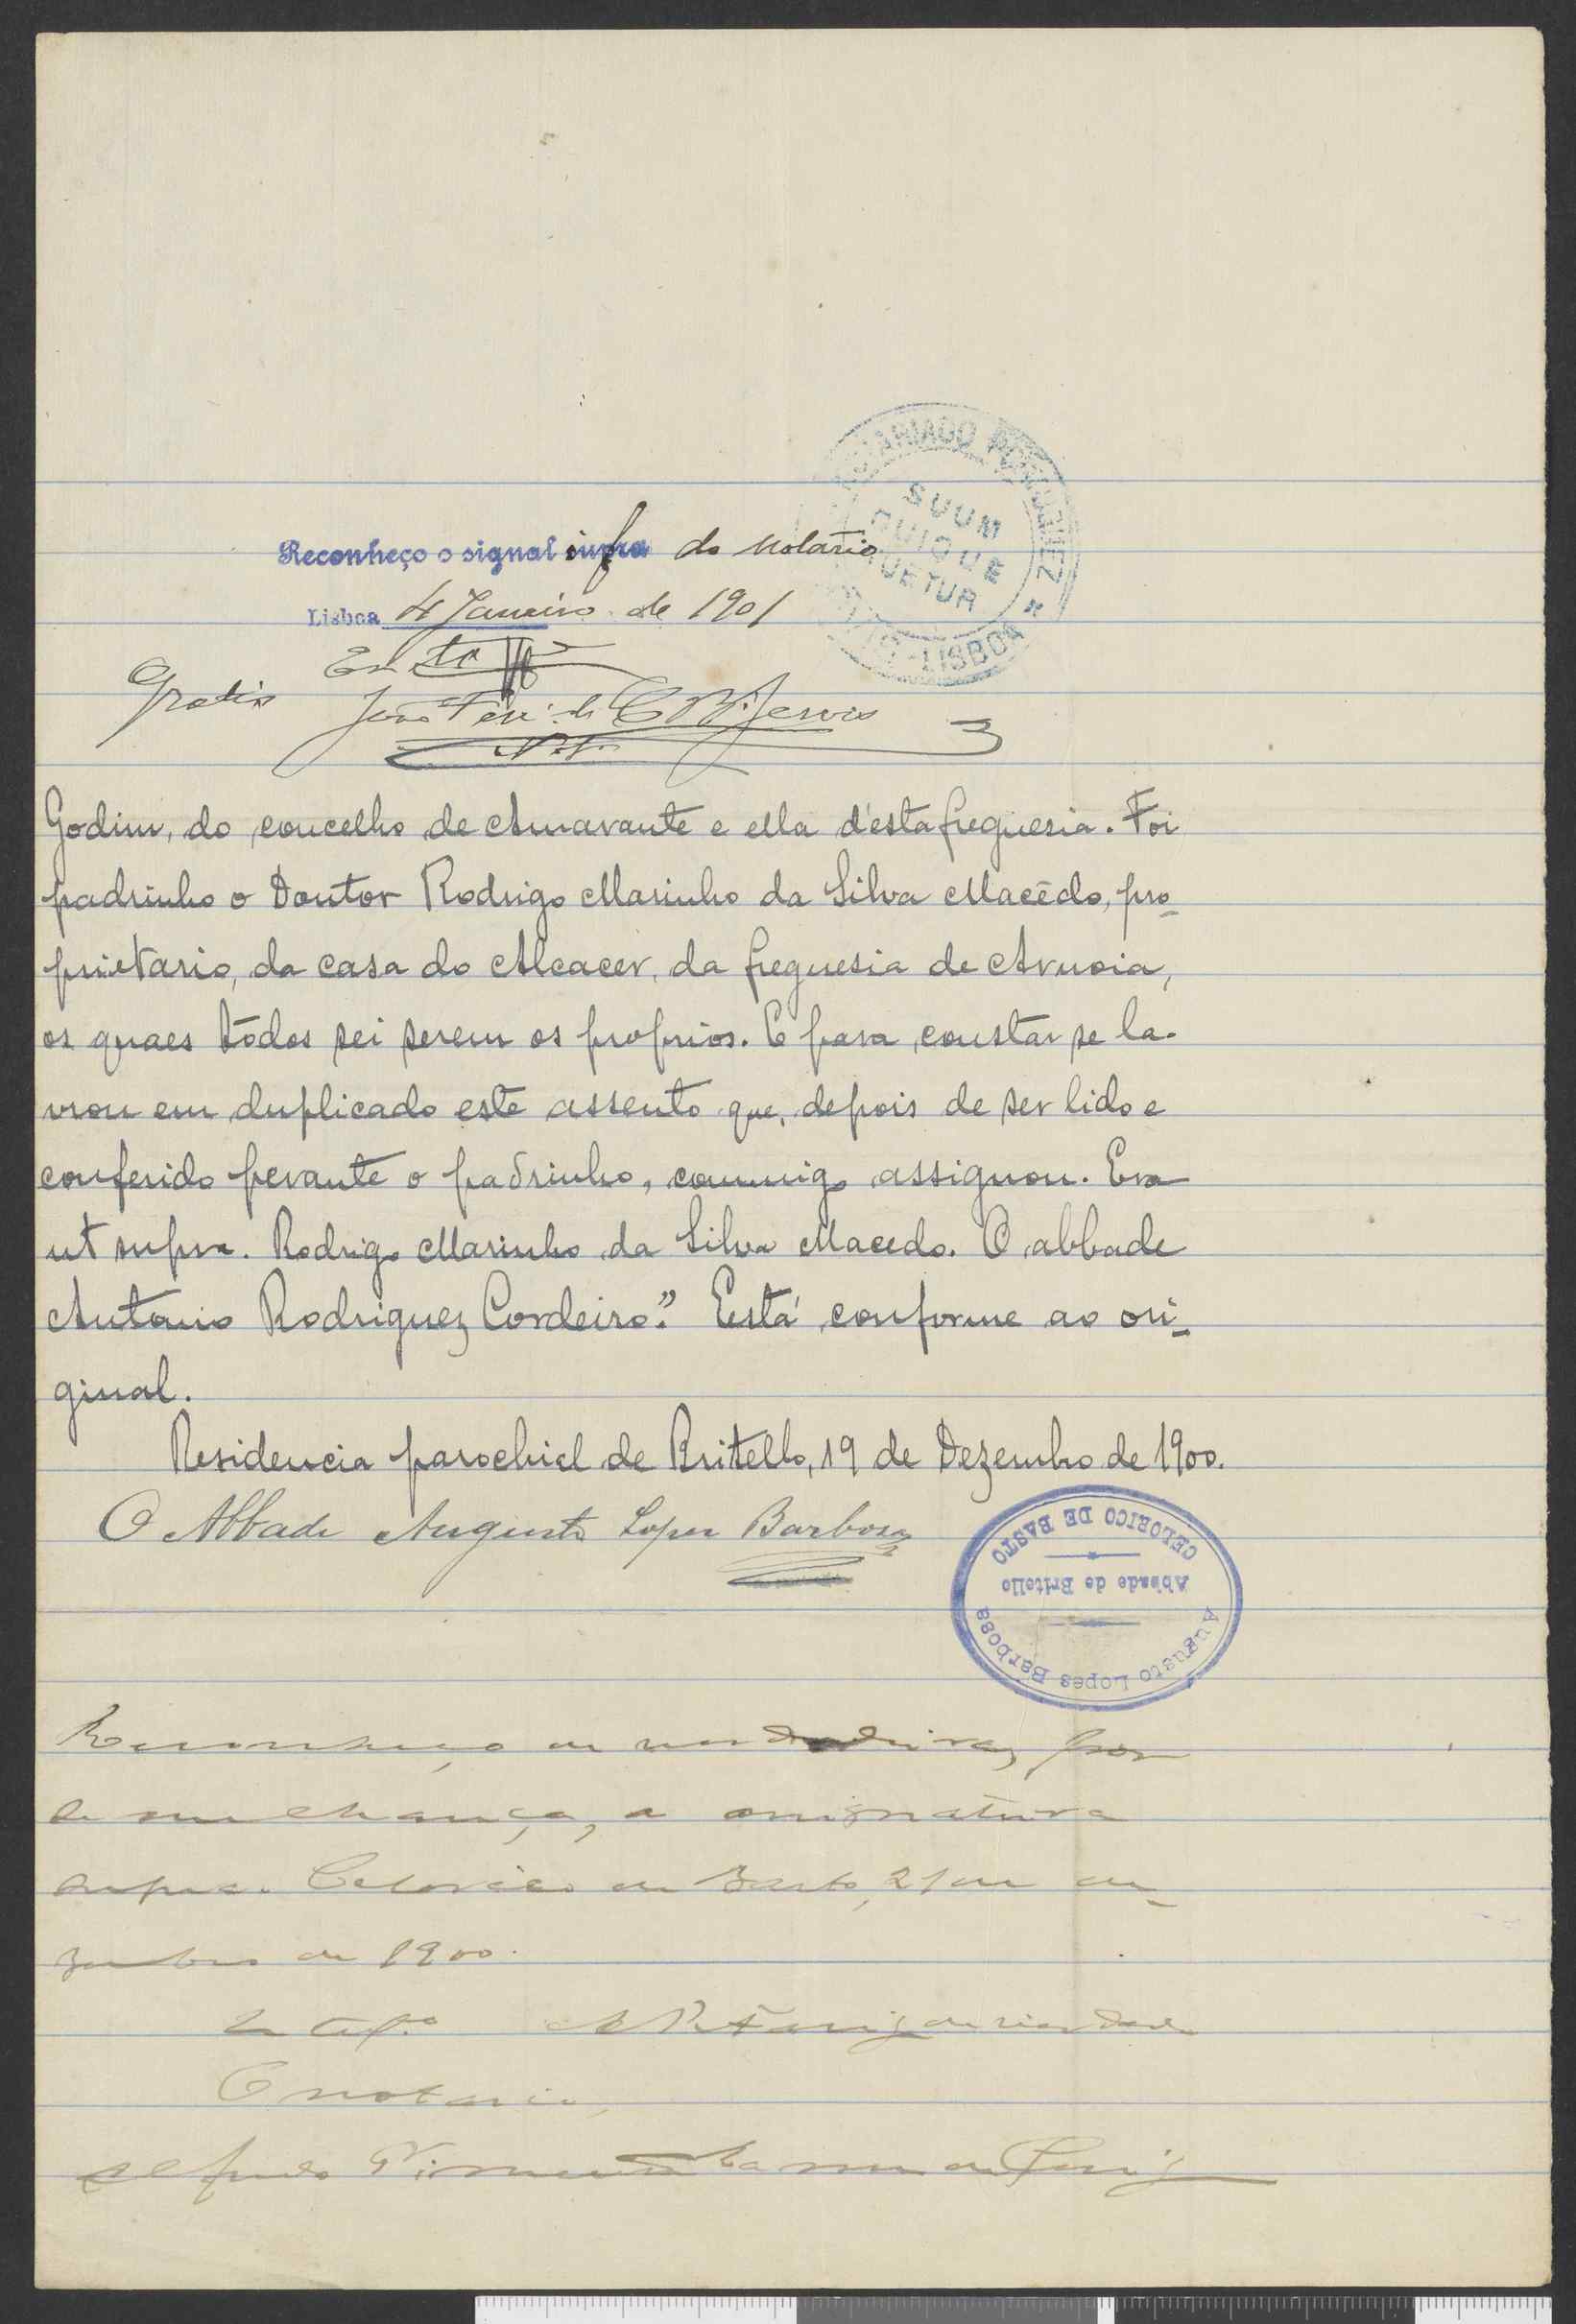 NOTARIADO PORTUGUEZ
SUUM
CUIQUE
TUETUR
LISBOA
Reconheço o signal infra do notario
Lisboa 4 Janeiro de 1901
Gratis
João
Godim, do concelho de Amarante e ella d'esta freguesia. Foi
padrinho o Doutor Rodrigo Marinho da Silva Macêdo, pro-
prietario, da casa do Alcacer, da freguesia de Arnoia,
os quaes tódos sei serem os proprios. E para constar se la-
vrou em duplicado este assento que, depois de ser lido e
conferido perante o padrinho, commigo assignou. Era
ut supra. Rodrigo Marinho da Silva Macedo. O abbade
Antonio Rodriguez Cordeiro." Está conforme ao ori-
ginal.
Residencia parochial de Britello, 19 de Dezembro de 1900.
O Abbade Augusto Lopes Barbosa
CELORICO DE BASTO
Abbade de Britello
Augusto Lopes Barbosa
Reconheço de verdadeira, por
semelhança, a assignatura
supra. Celorico de Basto, 21 de de-
zembro de 1900.
de verdade
O notario,
Alfredo